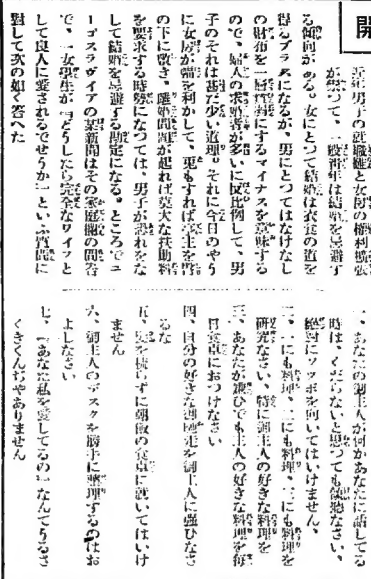 開
近年男子の就職難と女房の権利擴張
が祟つて、一般青年は結婚を忌避す
る傾向がある。女にとつて結婚は衣食の道を
得るプラスになるが、男にとつてはなけなし
の財布を一層空虚にするマイナスを意味する
ので、婦人の求婚者が多いに反比例して、男
子のそれは甚だ少い道理。それに今日のやう
に女房が 利かして、更もすれば亭主を臀
の下に敷き、離婚問題が起れば莫大な扶助料
を要求する時勢になつては、男子が誰れをな
して結婚を忌避する勘定になる。ところでユ
ーゴスラヴイアの某新聞はその家庭欄の問答
で、一女學生が「どうしたら完全なワイフと
して良人に愛されるでせうか」といふ質問に
對して次の如く答へた
一、あなたの御主人が何かあなたに話してる
時は、くだらないと思つても傾聽なさい、
絶對にソツポを向いてはいけません、
二、一にも料理、二にも料理、三にも料理を
研究なさい、特に御主人の好きな料理を
三、あなたが嫌ひでも主人の好きな料理を毎
日食卓におつけなさい
四、自分の好きな御馳走を御主人に強ひなさ
るな
五、髪を梳らずに朝飯の食卓に就いてはいけ
ません
六、御主人のデスクを勝手に整理するのはお
よしなさい
七、『あなた私を愛してるの』なんてうるさ
くきくんぢやありません